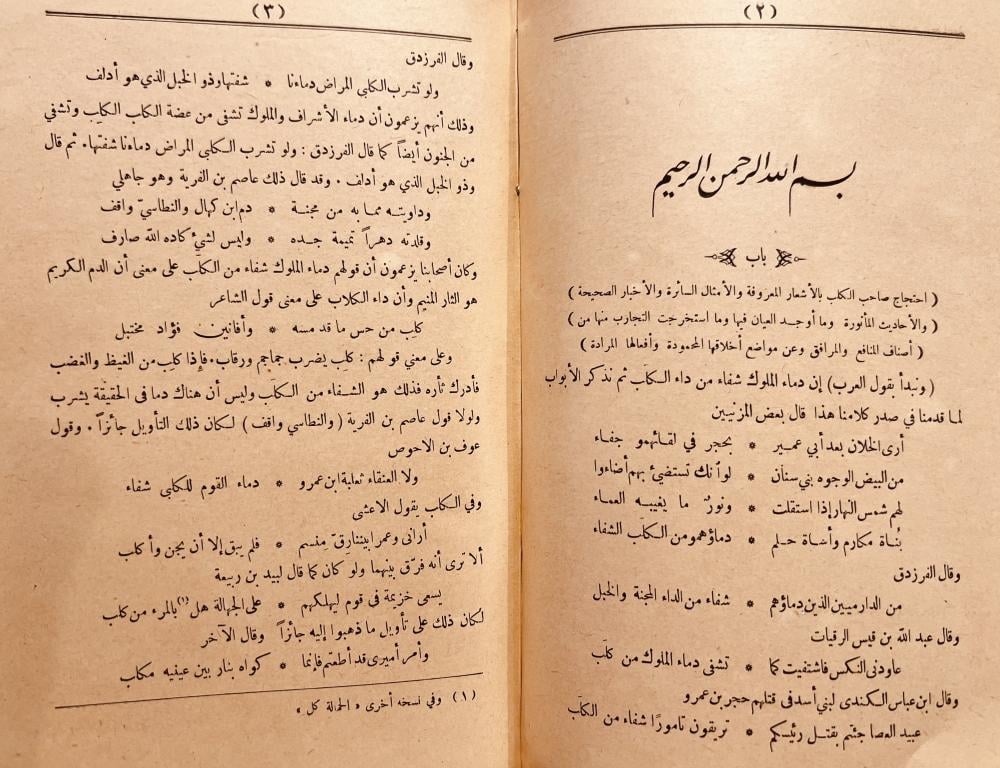 (٢)
بسم الله الرحمن الرحيم
باب
( احتجاج صاحب الكلب بالأشعار المعروفة والأمثال السائرة والأخبار الصحيحة )
( والأحاديث المأثورة وما أوجد العيان فيها وما استخرجت التجارب منها من )
( أصناف المنافع والمرافق وعن مواضع أخلاقها المحمودة وأفعالها المرادة )
( ونبدأ بقول العرب ) إن دماء الملوك شفاء من داء الكلَب ثم نذكر الأبواب
لما قدمنا في صدر كلامنا هذا قال بعض المزنيين
أرى الخلان بعد أبي عمير * بحجر في لقائهمو جفاء
من البيض الوجوه بني سنان * لو أنك تستضيئ بهم أضاءوا
لهم شمس النهار إذا استقلت * ونورٌ ما يغيبه العماء
بُناة مكارم وأساة حلم * دماؤهمو من الكلَب الشفاء
وقال الفرزدق
من الدارميين الذين دماؤهم * شفاء من الداء المجنة والخبل
وقال عبد الله بن قيس الرقيات
عاودني النكس فاشتفيت كما * تشفى دماء الملوك من كلَب
وقال ابن عباس الكندى لبني أسد فى قتلهم حجر بن عمرو
عبيد العصا جئتم بقتل رئيسكم * تريقون تامورًا شفاء من الكلَب
(٣)
وقال الفرزدق
ولو تشرب الكلبى المراض دماءنا * شفتها وذو الخبل الذي هو أدلف
وذلك أنهم يزعمون أن دماء الأشراف والملوك تشفى من عضة الكلب الكلِب وتشفي
من الجنون أيضاً كما قال الفرزدق : ولو تشرب الكلبى المراض دماءنا شفتها . ثم قال
وذو الخبل الذي هو أدلف . وقد قال ذلك عاصم بن القرية وهو جاهلي
وداويته مما به من مجنة * دم ابن كهال والنطاسيّ واقف
وقلدته دهراً تميمة جده * وليس لشيئ كاده الله صارف
وكان أصحابنا يزعمون أن قولهم دماء الملوك شفاء من الكلَب على معنى أن الدم الكريم
هو الثار المنيم وأن داء الكلاب على معنى قول الشاعر
كلِب من حس ما قد مسه * وأفانين فؤاد مختبل
وعلى معني قولهم : كلب يضرب جماجم ورقاب . فإذا كلِب من الغيظ والغضب
فأدرك ثأره فذلك هو الشفاء من الكلَب وليس أن هناك دما في الحقيقة يشرب
ولولا قول عاصم بن القرية ( والنطاسي واقف ) لكان ذلك التأويل جائزاً . وقول
عوف بن الاحوص
ولا العنقاء ثعلبة ابن عمرو * دماء القوم للكلبى شفاء
وفي الكلب يقول الاعشى
أراني وعمرا بيننا رقّ منسم * فلم يبق إلا أن يجن وأكلب
ألا ترى أنه فرّق بينهما ولو كان كما قال لبيد بن ربيعة
يسعى خزيمة فى قوم ليهلكهم * على الجهالة هل(١) بالمرء من كلب
لكان ذلك على تأويل ما ذهبوا إليه جائزاً وقال الآخر
وأمر أميرى قد أطعتم فإنما * كواه بنار بين عينيه مكلب
(١) وفي نسخه أخرى « الحمالة كل »